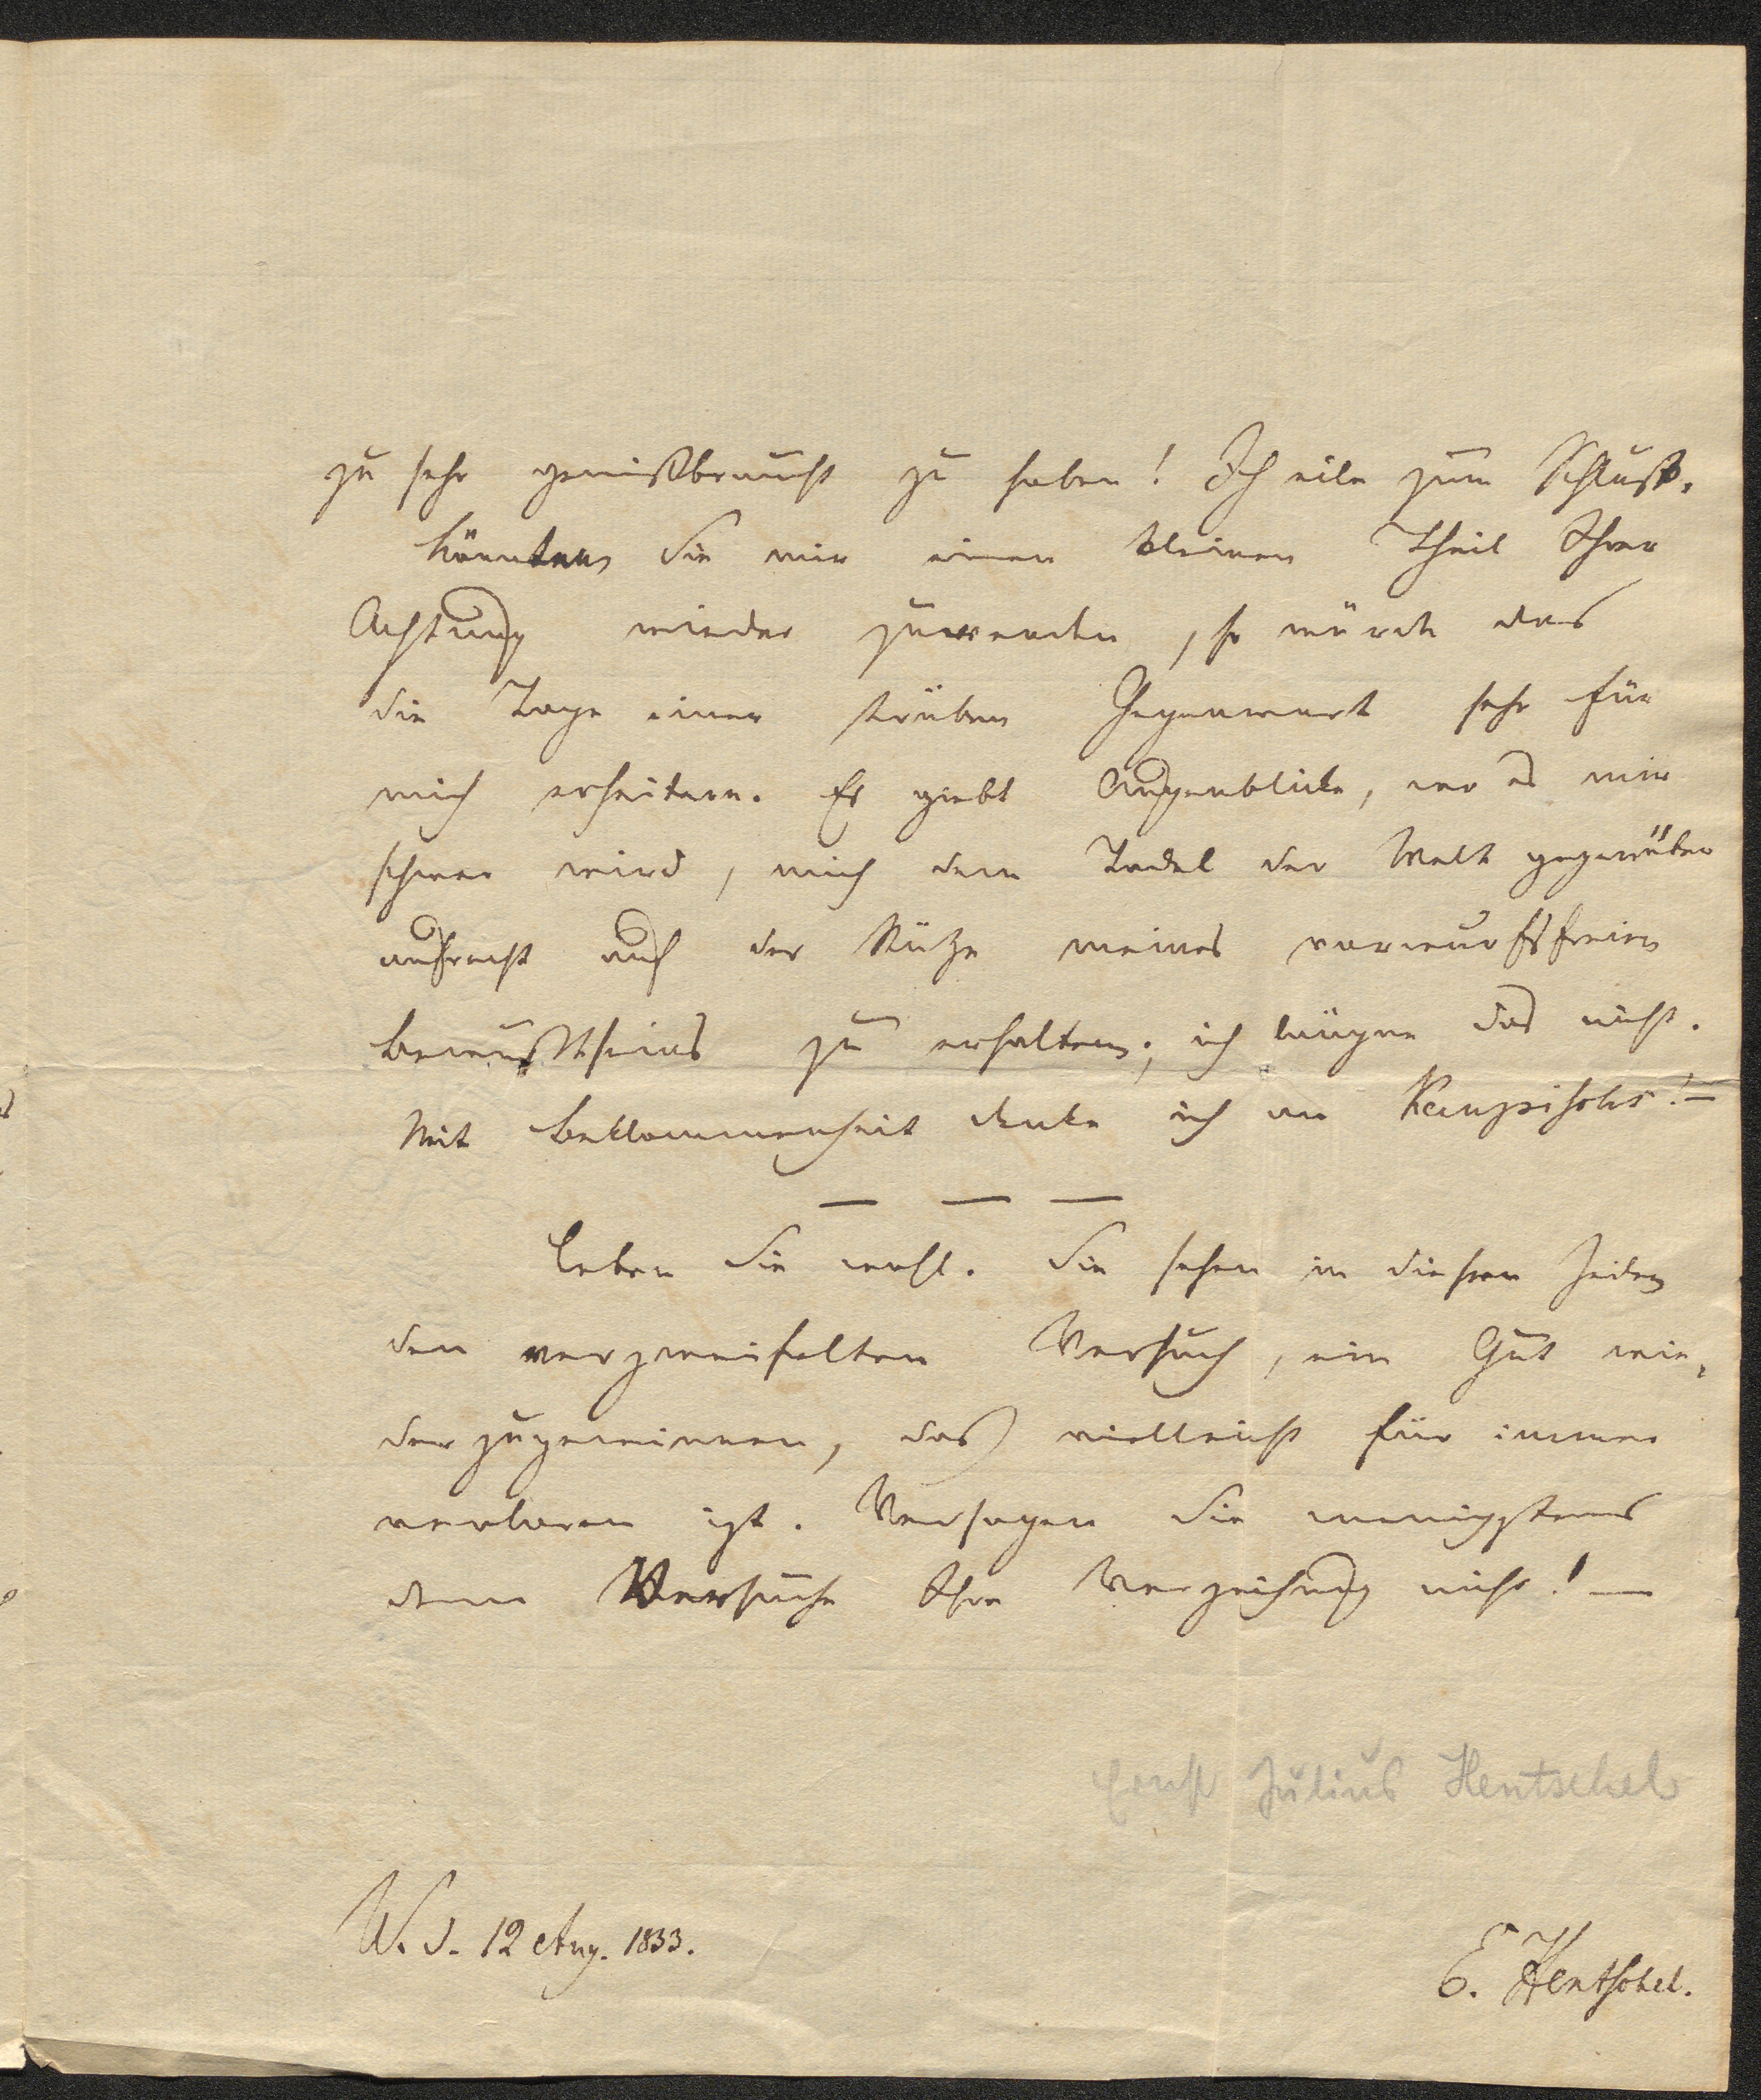 zu sehr gemißbraucht zu haben! Ich eile zum Schluß.
Könnten Sie mir einen kleinen Theil Ihrer
Achtung wieder zuwenden, so würde das
die Tage einer trüben Gegenwart sehr für
mich erheitern. Es giebt Augenblicke, wo es mir
schwer wird, mich dem Tadel der Welt gegenüber
aufrecht auf der Stütze meines vorwurfsfreien
Bewußtseins zu erhalten; ich läugne das nicht.
Mit Beklommenheit denke ich an! —
— — —
Leben Sie wohl. Sie sehen in diesen Zeilen
den verzweifelten Versuch, ein Gut wie-
derzugewinnen, das vielleicht für immer
verloren ist. Versagen Sie wenigstens
dem Versuche Ihre Verzeihung nicht! —
Ernst Julius Hentschel
W. d. 12 Aug. 1833.
E. Hentschel.